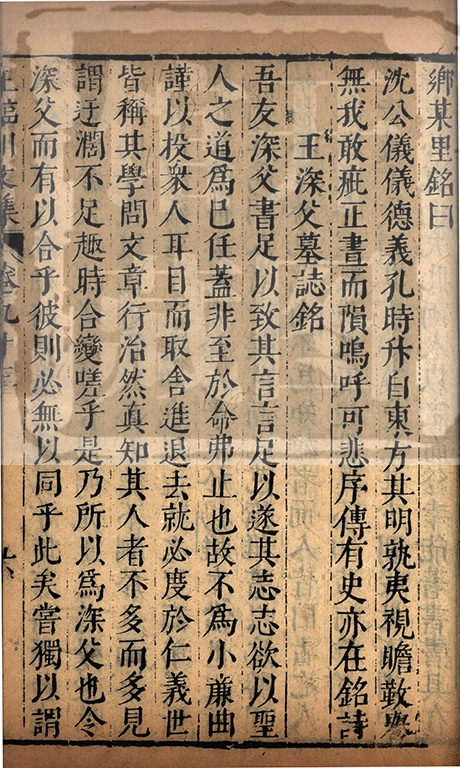 鄉某里銘曰
沈公儀儀德義孔時升自東方其明孰夷視瞻歎譽
無我敢疵正晝而隕嗚呼可悲序傳有史亦在銘詩
王深父墓誌銘
吾友深父書足以致其言言足以遂其志志欲以聖
人之道為已任蓋非至於命弗止也故不為小廉曲
謹以投衆人耳目而取舍進退去就必度於仁義世
皆稱其學問文章行治然真知其人者不多而多見
謂迂濶不足趣時合變嗟乎是乃所以為深父也令
深父而有以合乎彼則必無以同乎此矣嘗獨以謂
王臨川文集 卷九十三 六